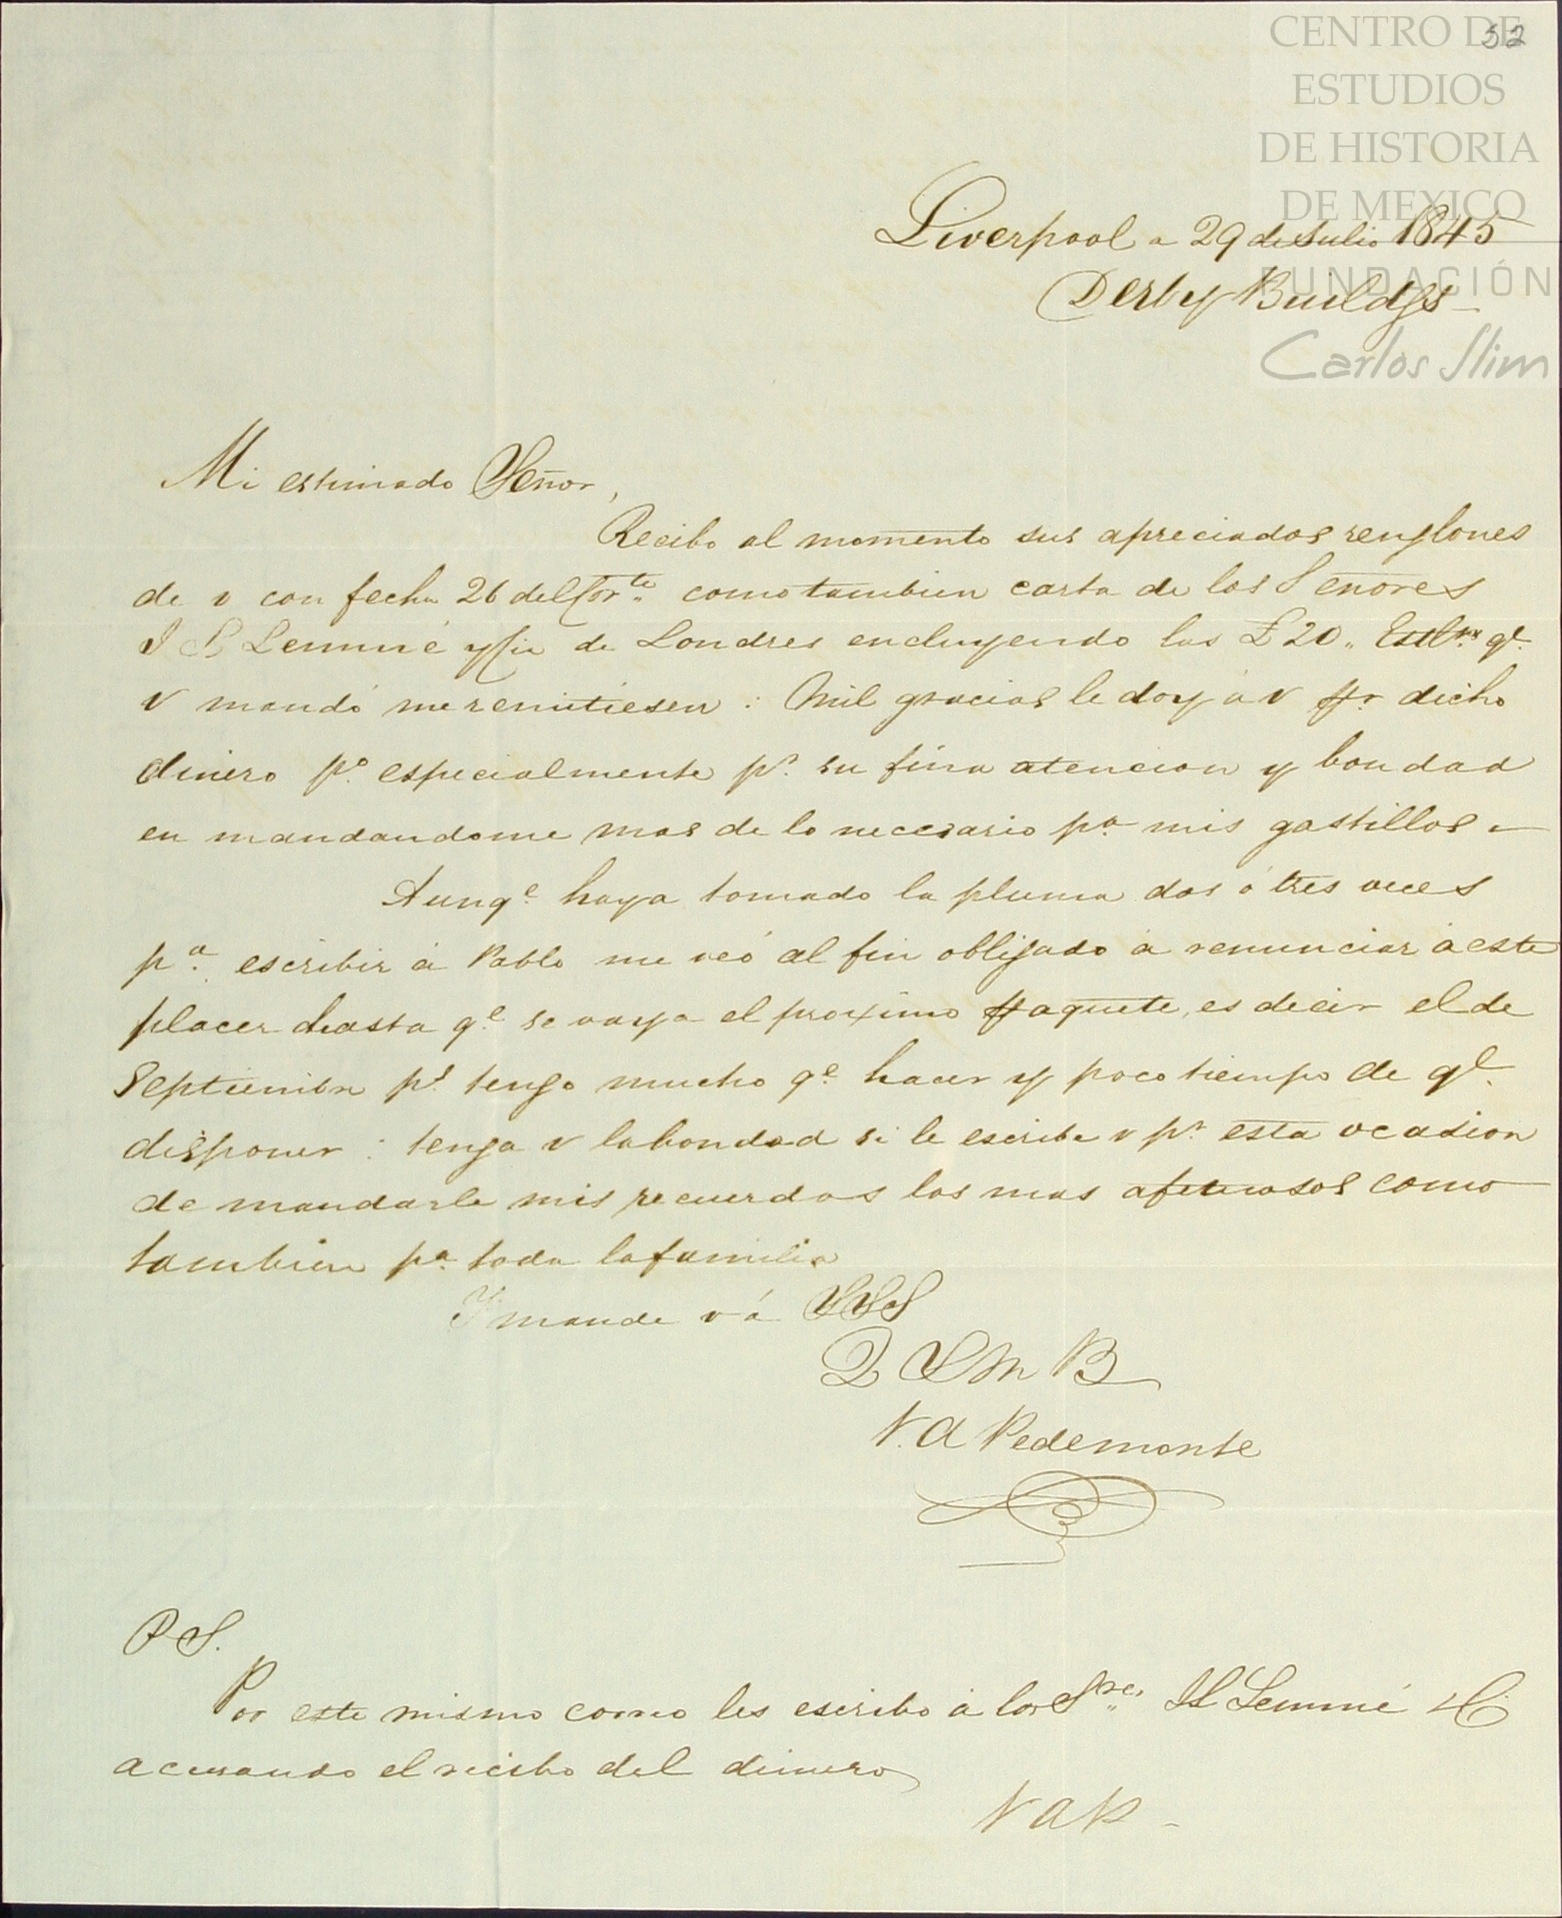 52
CENTRO DE
ESTUDIOS
DE HISTORIA
DE MEXICO
FUNDACIÓN
Carlos Slim
Liverpool a 29 de Julio 1845
Derby Buildgs
Mi estimado Señor,
Recibo al momento sus apreciados renglones
de v con fecha 26 del Cor.te como tambien carta de los Señores
J L Lemmé y Cia de Londres encluyendo las £20,, Estl.nas q.e
V mandó me remitiesen : Mil gracias le doy á v pr dicho
dinero p.o especialmente p.r su fina atencion y bondad
en mandandome mas de lo necesario p.a mis gastillos.
Aunq.e haya tomado la pluma dos ó tres veces
p.a escribir á Pablo me veó al fin obligado à renunciar à este
placer hasta q.e se vaya el proximo paquete, es decir el de
Septiembre p.s tengo mucho q.e hacer y poco tiempo de q.e
disponer : tenga v la bondad si le escribe v p.r esta ocasion
de mandarle mis recuerdos los mas afetuosos como
tambien p.a toda la familia
Y mande v á SSS
Q S M B
V. A Pedemonte
P S.
Por este mismo correo les escribo à los S.res JL Lemmé & C
acusando el recibo del dinero
V A P